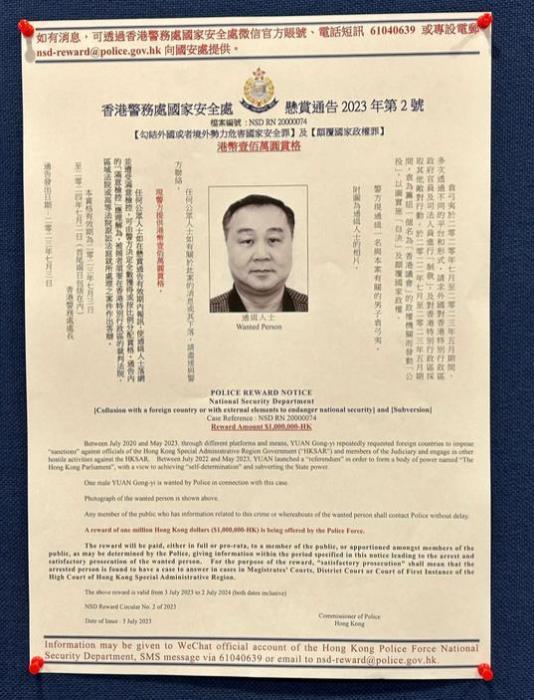 如有消息，可透過香港警務處國家安全處微信官方賬號、電話短訊 61040639 或專設電郵
nsd-reward@police.gov.hk 向國安處提供。
香港警務處國家安全處 懸賞通告 2023 年第 2 號
檔案編號：NSD RN 20000074
【勾結外國或者境外勢力危害國家安全罪】及【顛覆國家政權罪】
港幣壹佰萬圓賞格
袁弓夷於二○二○年七月至二○二三年五月期間，
多次透過不同的平台和形式，請求外國對香港特別行政區
政府官員及司法人員進行「制裁」及對香港特別行政區採
取其他敵對行動。於二○二二年七月至二○二三年五月期
間，袁為籌組一個名為「香港議會」的政權機關而發動「公
投」，以圖實施「自決」及顛覆國家政權。
警方現通緝一名與本案有關的男子袁弓夷。
附圖為通緝人士的相片。
任何公眾人士如有關於此案的消息或其下落，請盡速與警
方聯絡。
現警方提供港幣壹佰萬圓賞格。
任何公眾人士如在懸賞通告有效期內報訊，使通緝人士落網
並遭受滿意檢控，可由警方決定全數獲得或按比例分配賞格。通告內
的「滿意檢控」應理解為，被捕者需要在香港特別行政區的裁判法院、
區域法院或高等法院原訟法庭就所控之案件作出答辯。
本賞格有效期為二○二三年七月三日
至二○二四年七月二日（首尾兩日包括在內）
香港警務處處長
通告發出日期：二○二三年七月三日
通緝人士
Wanted Person
POLICE REWARD NOTICE
National Security Department
[Collusion with a foreign country or with external elements to endanger national security] and [Subversion]
Case Reference : NSD RN 20000074
Reward Amount $1,000,000-HK
Between July 2020 and May 2023, through different platforms and means, YUAN Gong-yi repeatedly requested foreign countries to impose
"sanctions" against officials of the Hong Kong Special Administrative Region Government ("HKSAR") and members of the Judiciary and engage in other
hostile activities against the HKSAR. Between July 2022 and May 2023, YUAN launched a "referendum" in order to form a body of power named "The
Hong Kong Parliament", with a view to achieving "self-determination" and subverting the State power.
One male YUAN Gong-yi is wanted by Police in connection with this case.
Photograph of the wanted person is shown above.
Any member of the public who has information related to this crime or whereabouts of the wanted person shall contact Police without delay.
A reward of one million Hong Kong dollars ($1,000,000-HK) is being offered by the Police Force.
The reward will be paid, either in full or pro-rata, to a member of the public, or apportioned amongst members of the
public, as may be determined by the Police, giving information within the period specified in this notice leading to the arrest and
satisfactory prosecution of the wanted person. For the purpose of the reward, "satisfactory prosecution" shall mean that the
arrested person is found to have a case to answer in cases in Magistrates' Courts, District Court or Court of First Instance of the
High Court of Hong Kong Special Administrative Region.
The above reward is valid from 3 July 2023 to 2 July 2024 (both dates inclusive)
NSD Reward Circular No. 2 of 2023
Date of Issue: 3 July 2023
Commissioner of Police
Hong Kong
Information may be given to WeChat official account of the Hong Kong Police Force National
Security Department, SMS message via 61040639 or email to nsd-reward@police.gov.hk.